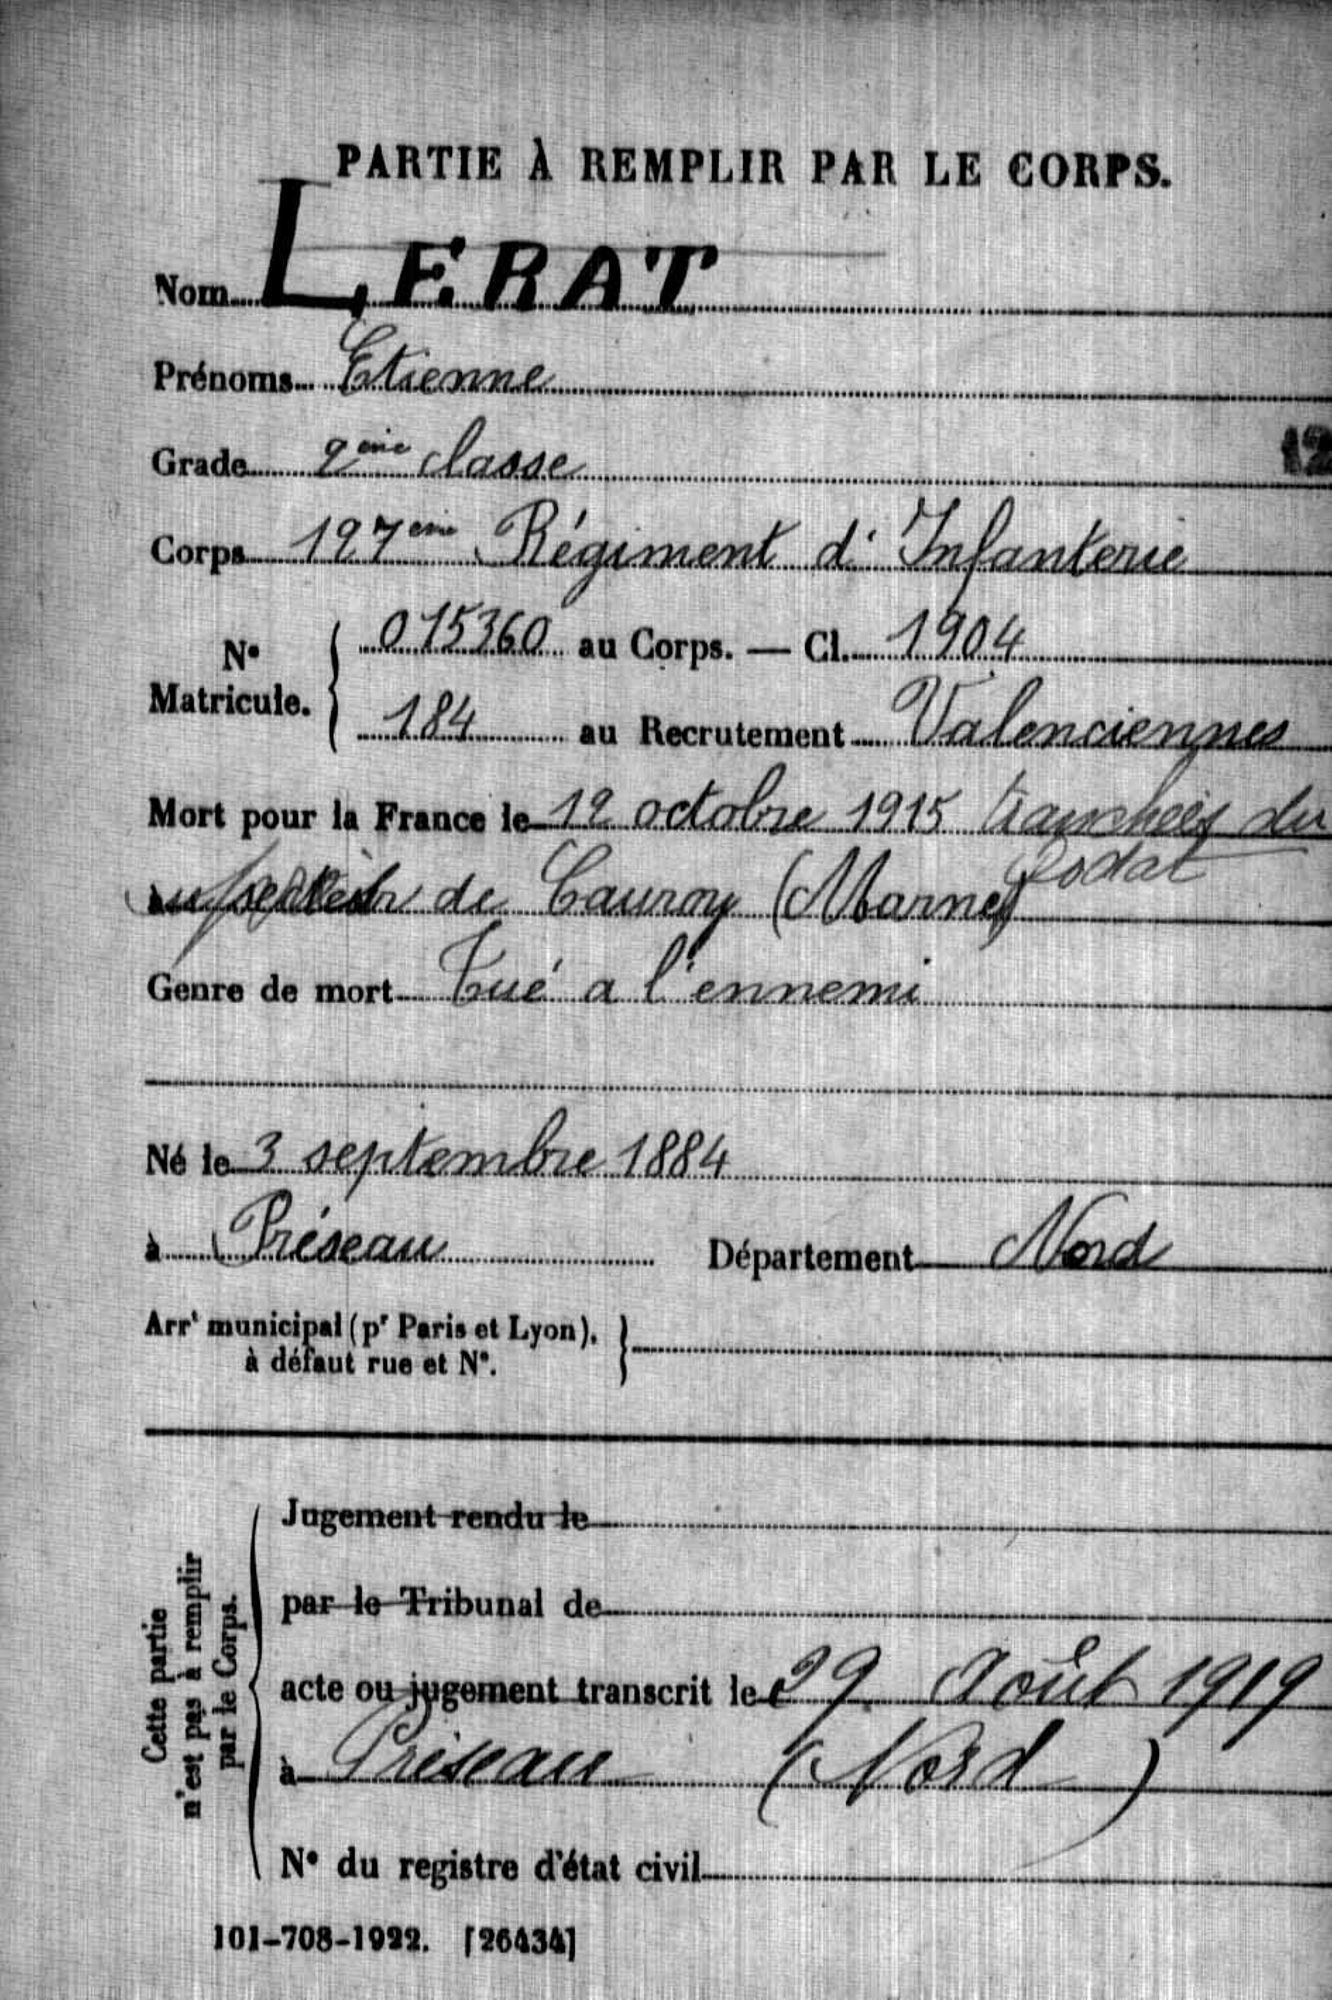 PARTIE À REMPLIR PAR LE CORPS.
Nom LERAT
Prénoms Etienne
Grade 2ème classe
12
Corps 127ème Régiment d'Infanterie
N° Matricule. 015360 au Corps. — Cl. 1904
184 au Recrutement Valenciennes
Mort pour la France le 12 octobre 1915 tranchées du
de Cauroy (Marne)
Genre de mort Tué a l'ennemi
Né le 3 septembre 1884
à Préseau Département Nord
Arrt municipal (pr Paris et Lyon),
à défaut rue et N°.
Cette partie
n'est pas à remplir
par le Corps.
Jugement rendu le
par le Tribunal de
acte ou jugement transcrit le 29 Août 1919
à Préseau (Nord)
N° du registre d'état civil
101-708-1922. [26434]